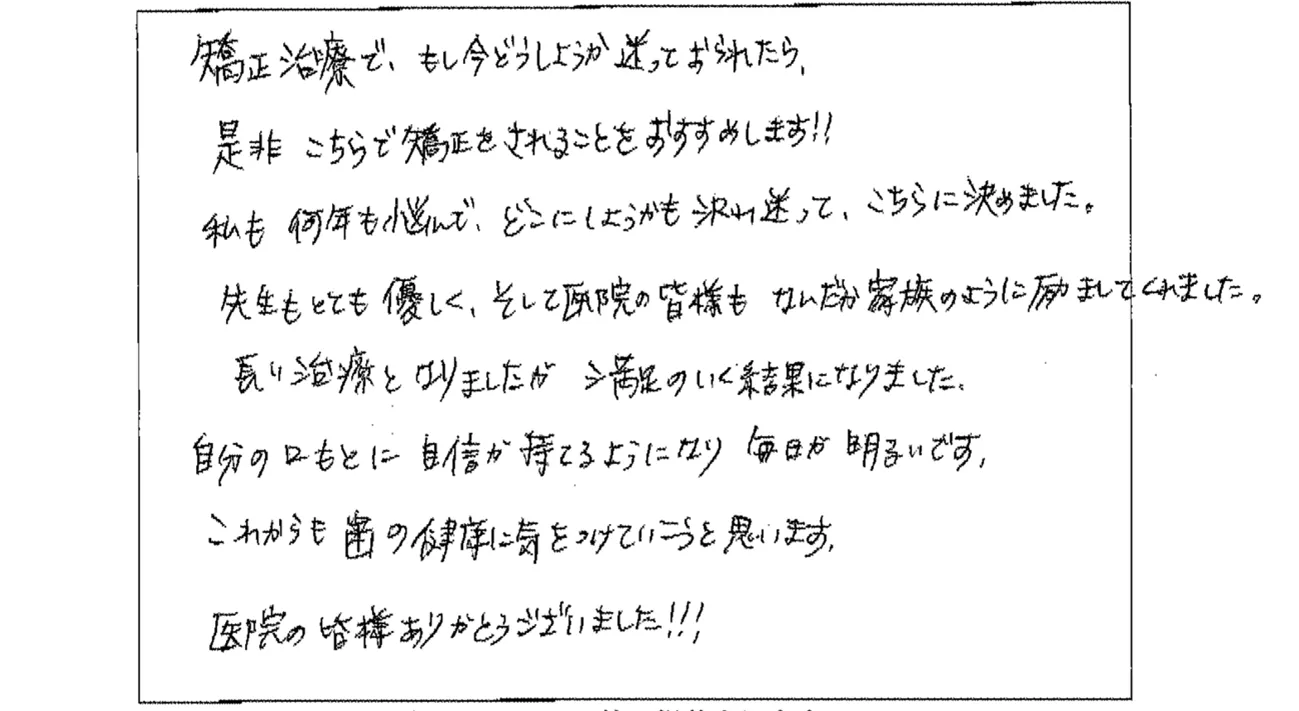 矯正治療で、もし今どうしようか迷っておられたら、
是非 こちらで矯正をされることをおすすめします!!
私も 何年も悩んで、どこにしようかも 迷って、こちらに決めました。
先生もとても 優しく、そして医院の皆様も なんだか 家族のように励ましてくれました。
長い治療と なりましたが 満足のいく結果になりました。
自分の口もとに 自信が 持てるようになり 毎日が 明るいです。
これからも 歯の健康に気をつけていこうと思います。
医院の皆様ありがとうございました!!!